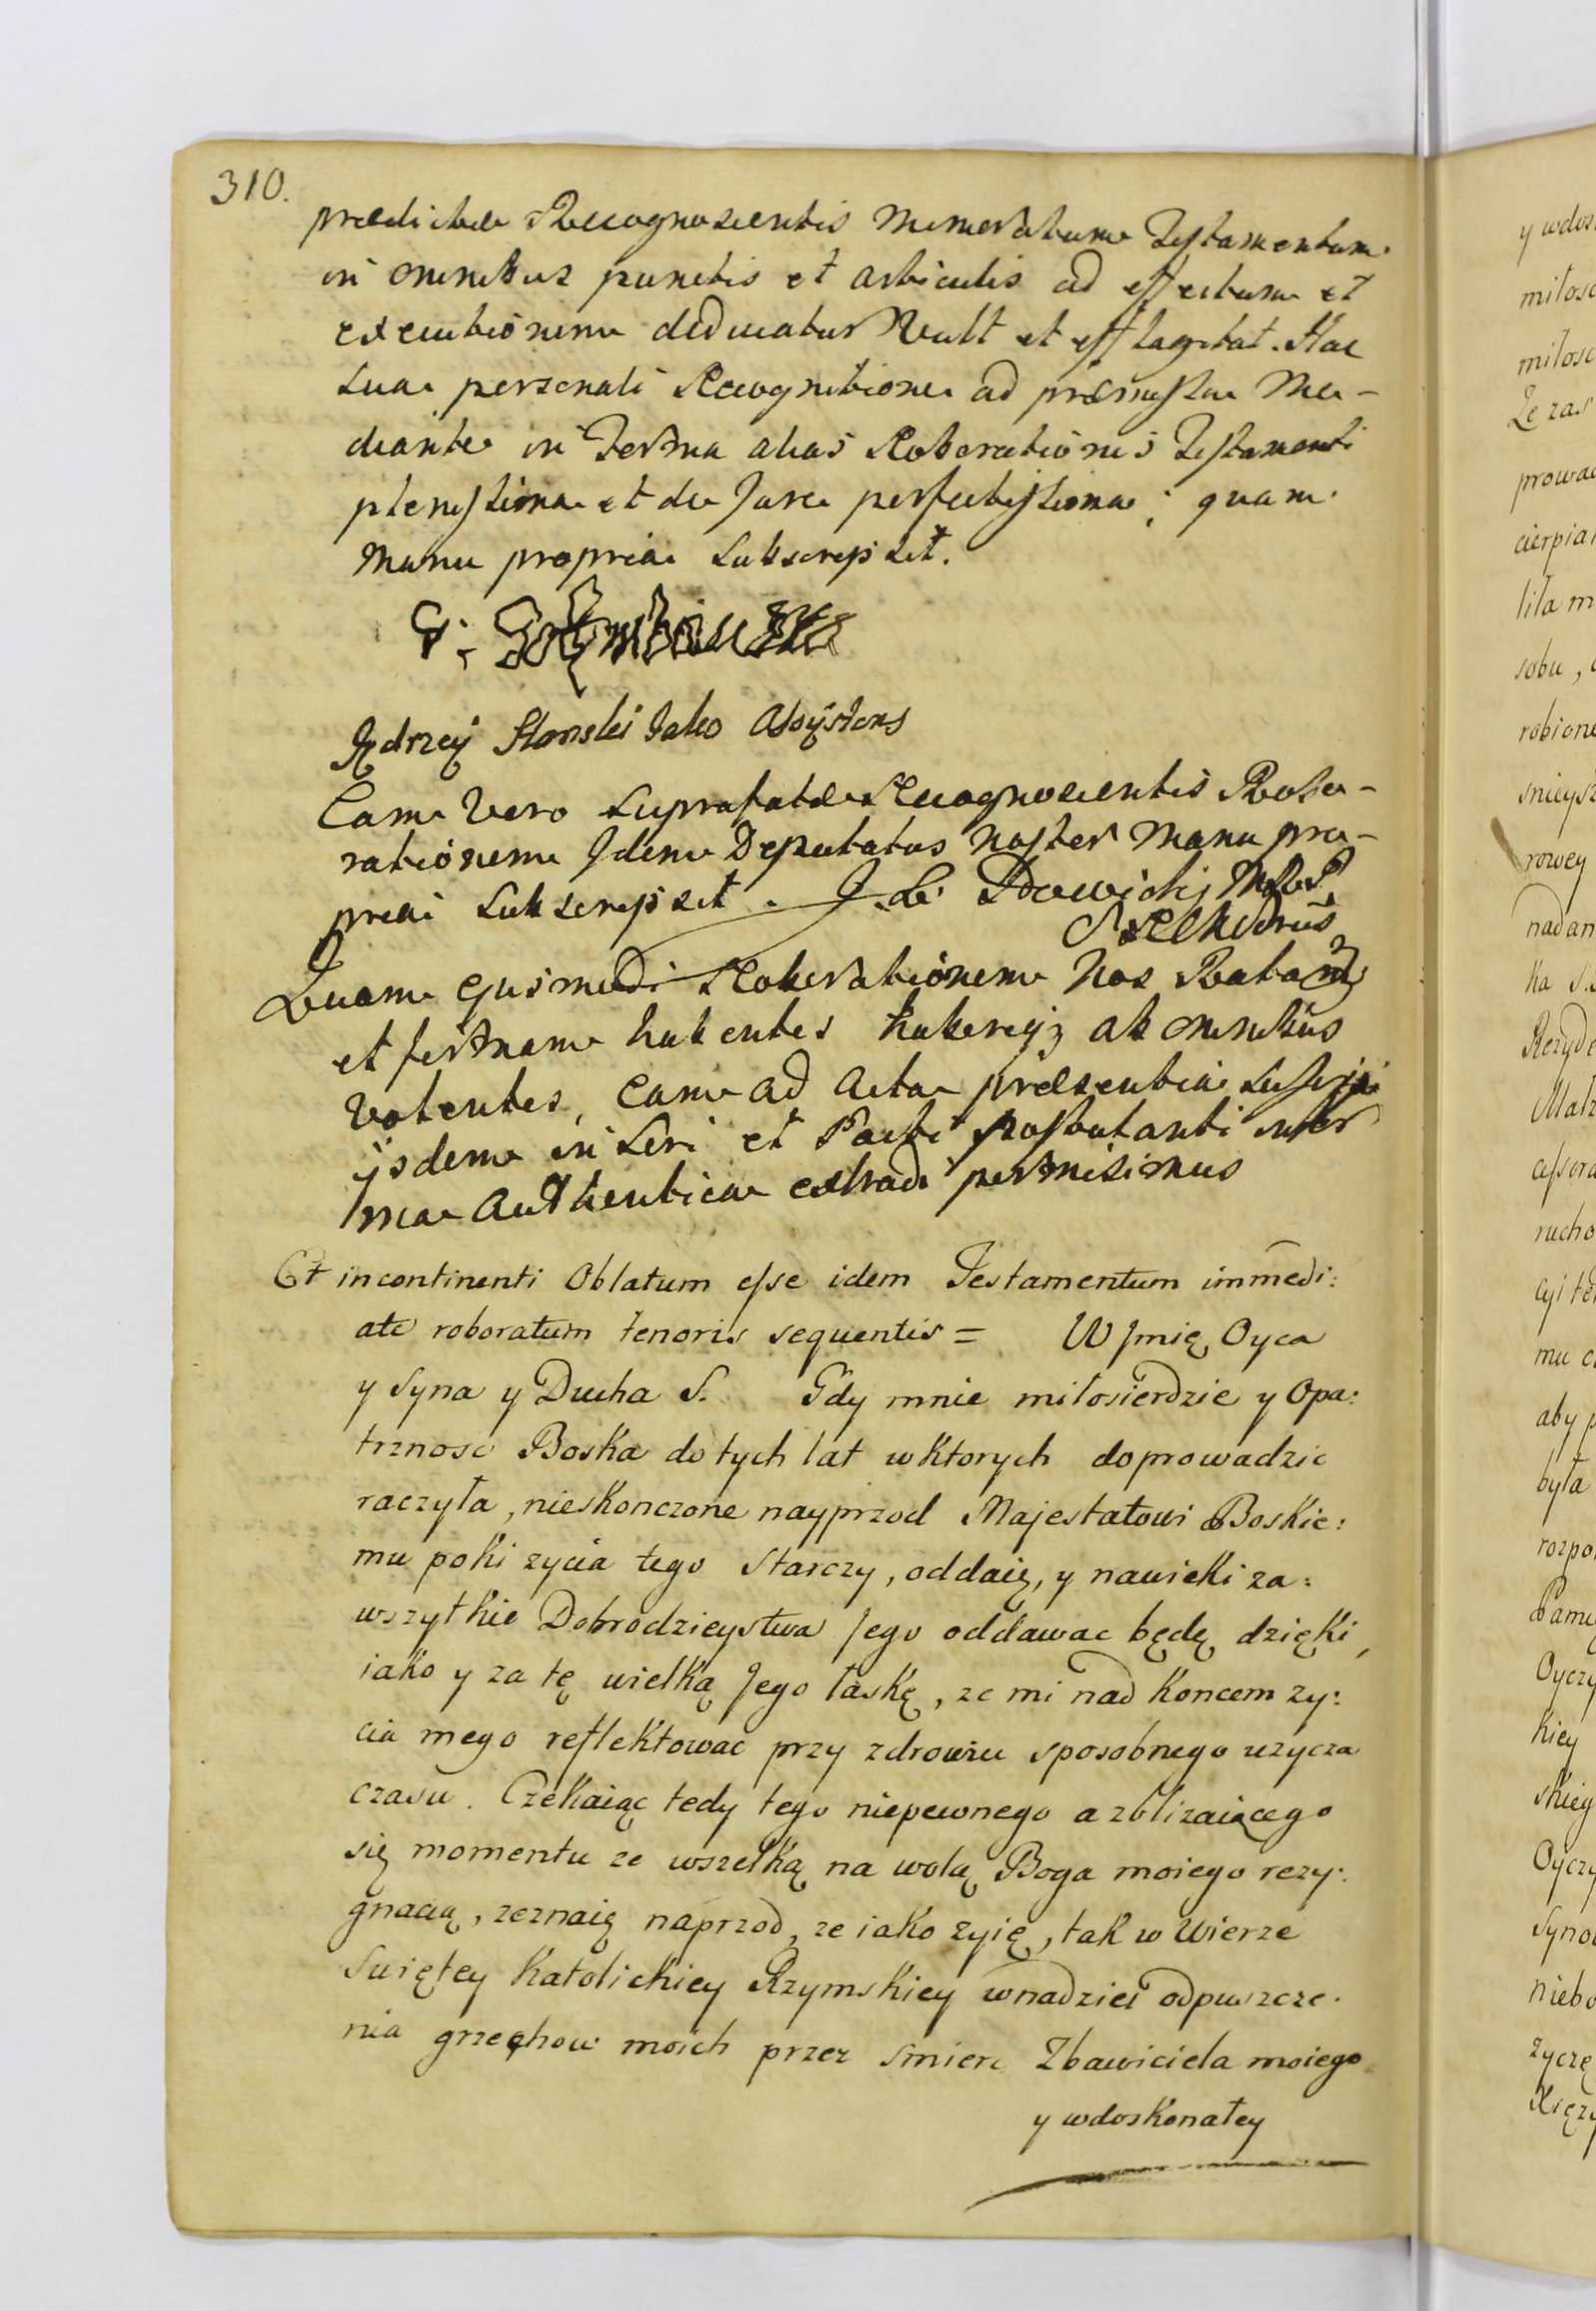 310.
praedictae Recognoscentis memoratum Testamentum
in omnibus punctis et articulis ad effectum et
executionem deducatur Vult et efflagitat. Hac
sua personali Recognitione ad praemissa Me-
diante in Forma alias Roborationis Testamenti
plenissima et de Jure perfectissima; quam
manu propria subscripsit.
Jędrzey Słonski Jako Assystens
Eam Vero supra fatae Recognoscentis Robo-
rationem Idem Deputatus noster manu pro-
pria subscripsit.
Quam ejusmodi Roborationem Nos Ratam
et firmam habentes haberiq; ab omnibus
volentes, eam ad Acta praesentia suscipi
ijsdem inseri et Parti postulanti in for
ma authentica extradi permisimus
Et incontinenti Oblatum esse idem Testamentum immedi:
ate roboratum tenoris sequentis = W Jmię Oyca
y Syna y Ducha S. Gdy mnie miłosierdzie y Opa:
trznosc Boska do tych lat w ktorych doprowadzic
raczyła, nieskonczone nayprzod Majestatowi Boskie:
mu poki zycia tego starczy, oddaię, y nawieki za:
wszytkie Dobrodzieystwa Jego oddawac będę dzięki,
iako y za tę wielką Jego łaskę, ze mi nad koncem zy:
cia mego reflektowac przy zdrowiu sposobnego uzycza
czasu. Czekaiąc tedy tego niepewnego a zblizaiącego
się momentu ze wszelką na wolą Boga moiego rezy:
gnacią, zeznaię naprzod, ze iako zyię, tak w Wierze
Swiętey Katolickiey Rzymskiey w nadziei odpuszcze:
nia grzechow moich przez smierc Zbawiciela moiego
y wdoskonałey